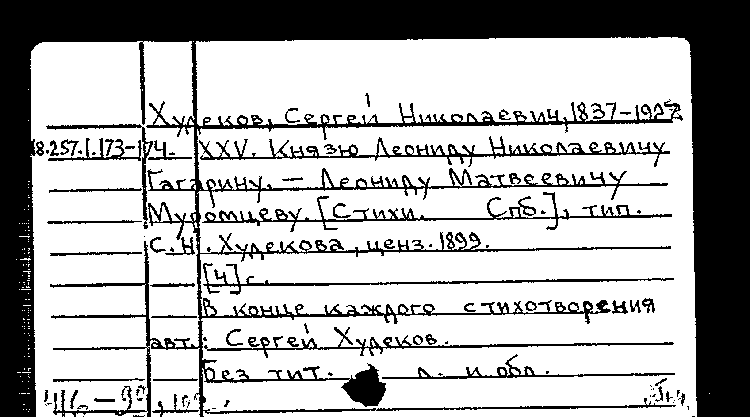 Худеков, Сергей Николаевич, 1837-1927
18.257.1.173-174. XXV. Князю Леониду Николаевичу
Гагарину. — Леониду Матвеевичу
Муромцеву. [Стихи. Спб.], тип.
С.Н. Худекова, ценз. 1899.
[4] с.
В конце каждого стихотворения
авт.: Сергей Худеков.
Без тит. л. и обл.